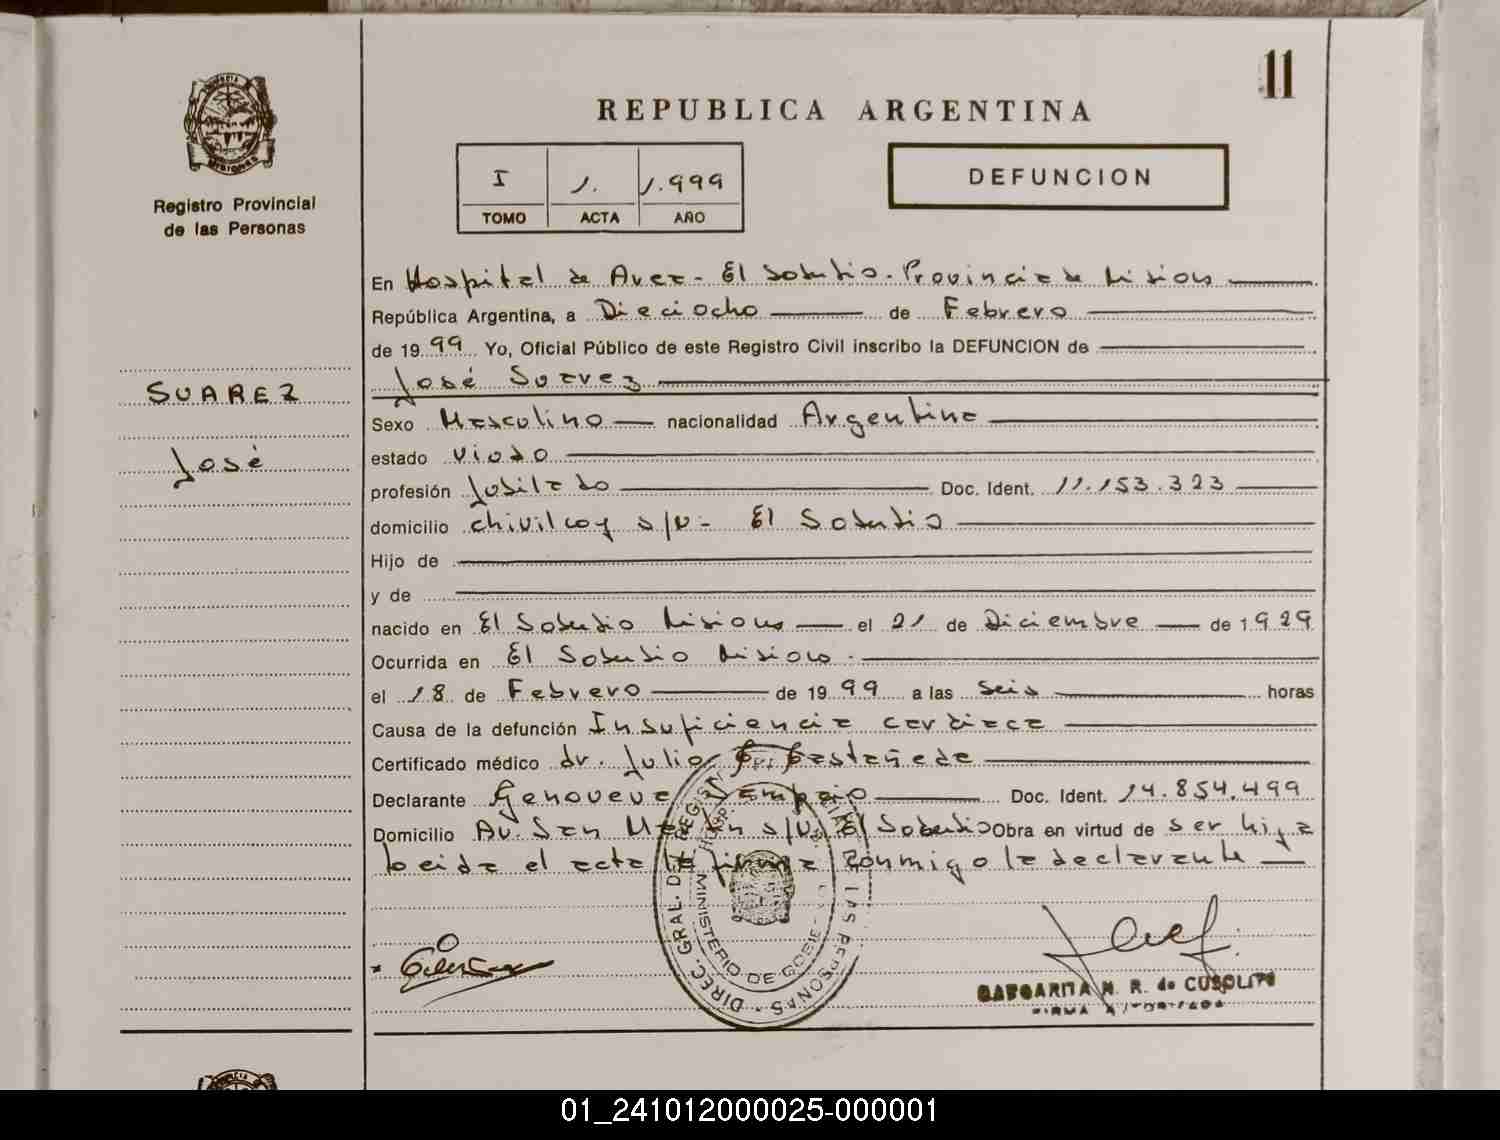 11
REPUBLICA ARGENTINA
Registro Provincial
de las Personas
I 1. 1.999
TOMO ACTA AÑO
DEFUNCION
SUAREZ
José
En Hospital de Area - El Soberbio - Provincia de Misiones
República Argentina, a Dieciocho de Febrero
de 1999 Yo, Oficial Público de este Registro Civil inscribo la DEFUNCION de
José Suarez
Sexo Masculino nacionalidad Argentina
estado viudo
profesión Jubilado Doc. Ident. 11.153.323
domicilio chivilcoy s/n - El Soberbio
Hijo de
y de
nacido en El Soberbio Misiones el 21 de Diciembre de 1929
Ocurrida en El Soberbio Misiones.
el 18 de Febrero de 1999 a las seis horas
Causa de la defunción Insuficiencia cardiaca
Certificado médico dr. Julio Castañeda
Declarante Genoveva Sampaio Doc. Ident. 14.854.499
Domicilio Av. San Martin s/n El Soberbio Obra en virtud de ser hija
Leida el acta la firma conmigo la declarante
DIREC. GRAL. DEL REGISTRO PROVINCIAL DE LAS PERSONAS
MINISTERIO DE GOBIE
MARGARITA N. R. de CUSOLITO
FIRMA AUTORIZADA
01_241012000025-000001